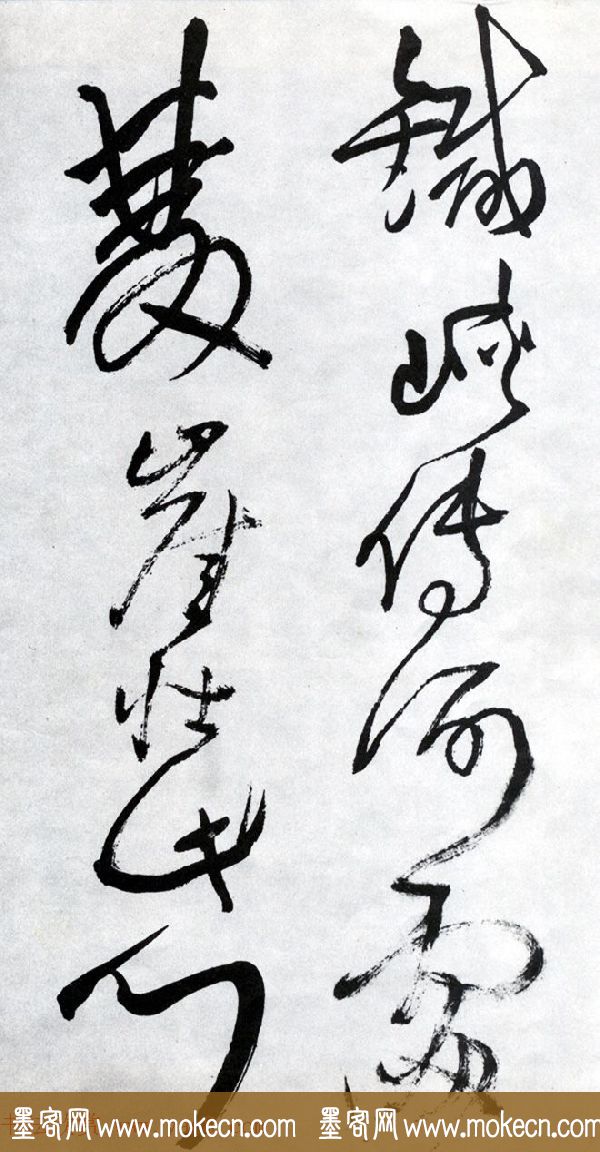 鐵峽傳何處
雙崖壯此門
墨客网 www.mokecn.com 墨客网 www.mokecn.com